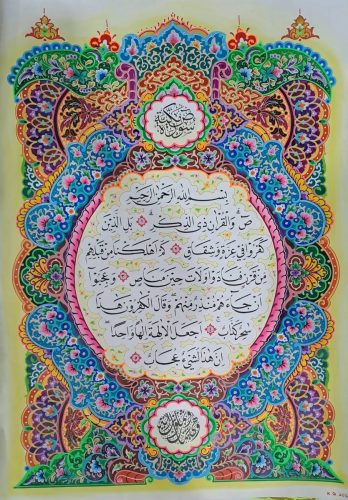 سورة ص مكية
بِسْمِ اللهِ الرَّحْمٰنِ الرَّحِيْمِ
صۤ وَالْقُرْاٰنِ ذِى الذِّكْرِ ۝ بَلِ الَّذِيْنَ
كَفَرُوْا فِيْ عِزَّةٍ وَّشِقَاقٍ ۝ كَمْ اَهْلَكْنَا مِنْ قَبْلِهِمْ
مِّنْ قَرْنٍ فَنَادَوْا وَّلَاتَ حِيْنَ مَنَاصٍ ۝ وَعَجِبُوْٓا
اَنْ جَاۤءَهُمْ مُّنْذِرٌ مِّنْهُمْ وَقَالَ الْكٰفِرُوْنَ هٰذَا
سٰحِرٌ كَذَّابٌ ۝ اَجَعَلَ الْاٰلِهَةَ اِلٰهًا وَّاحِدًا
اِنَّ هٰذَا لَشَيْءٌ عُجَابٌ ۝